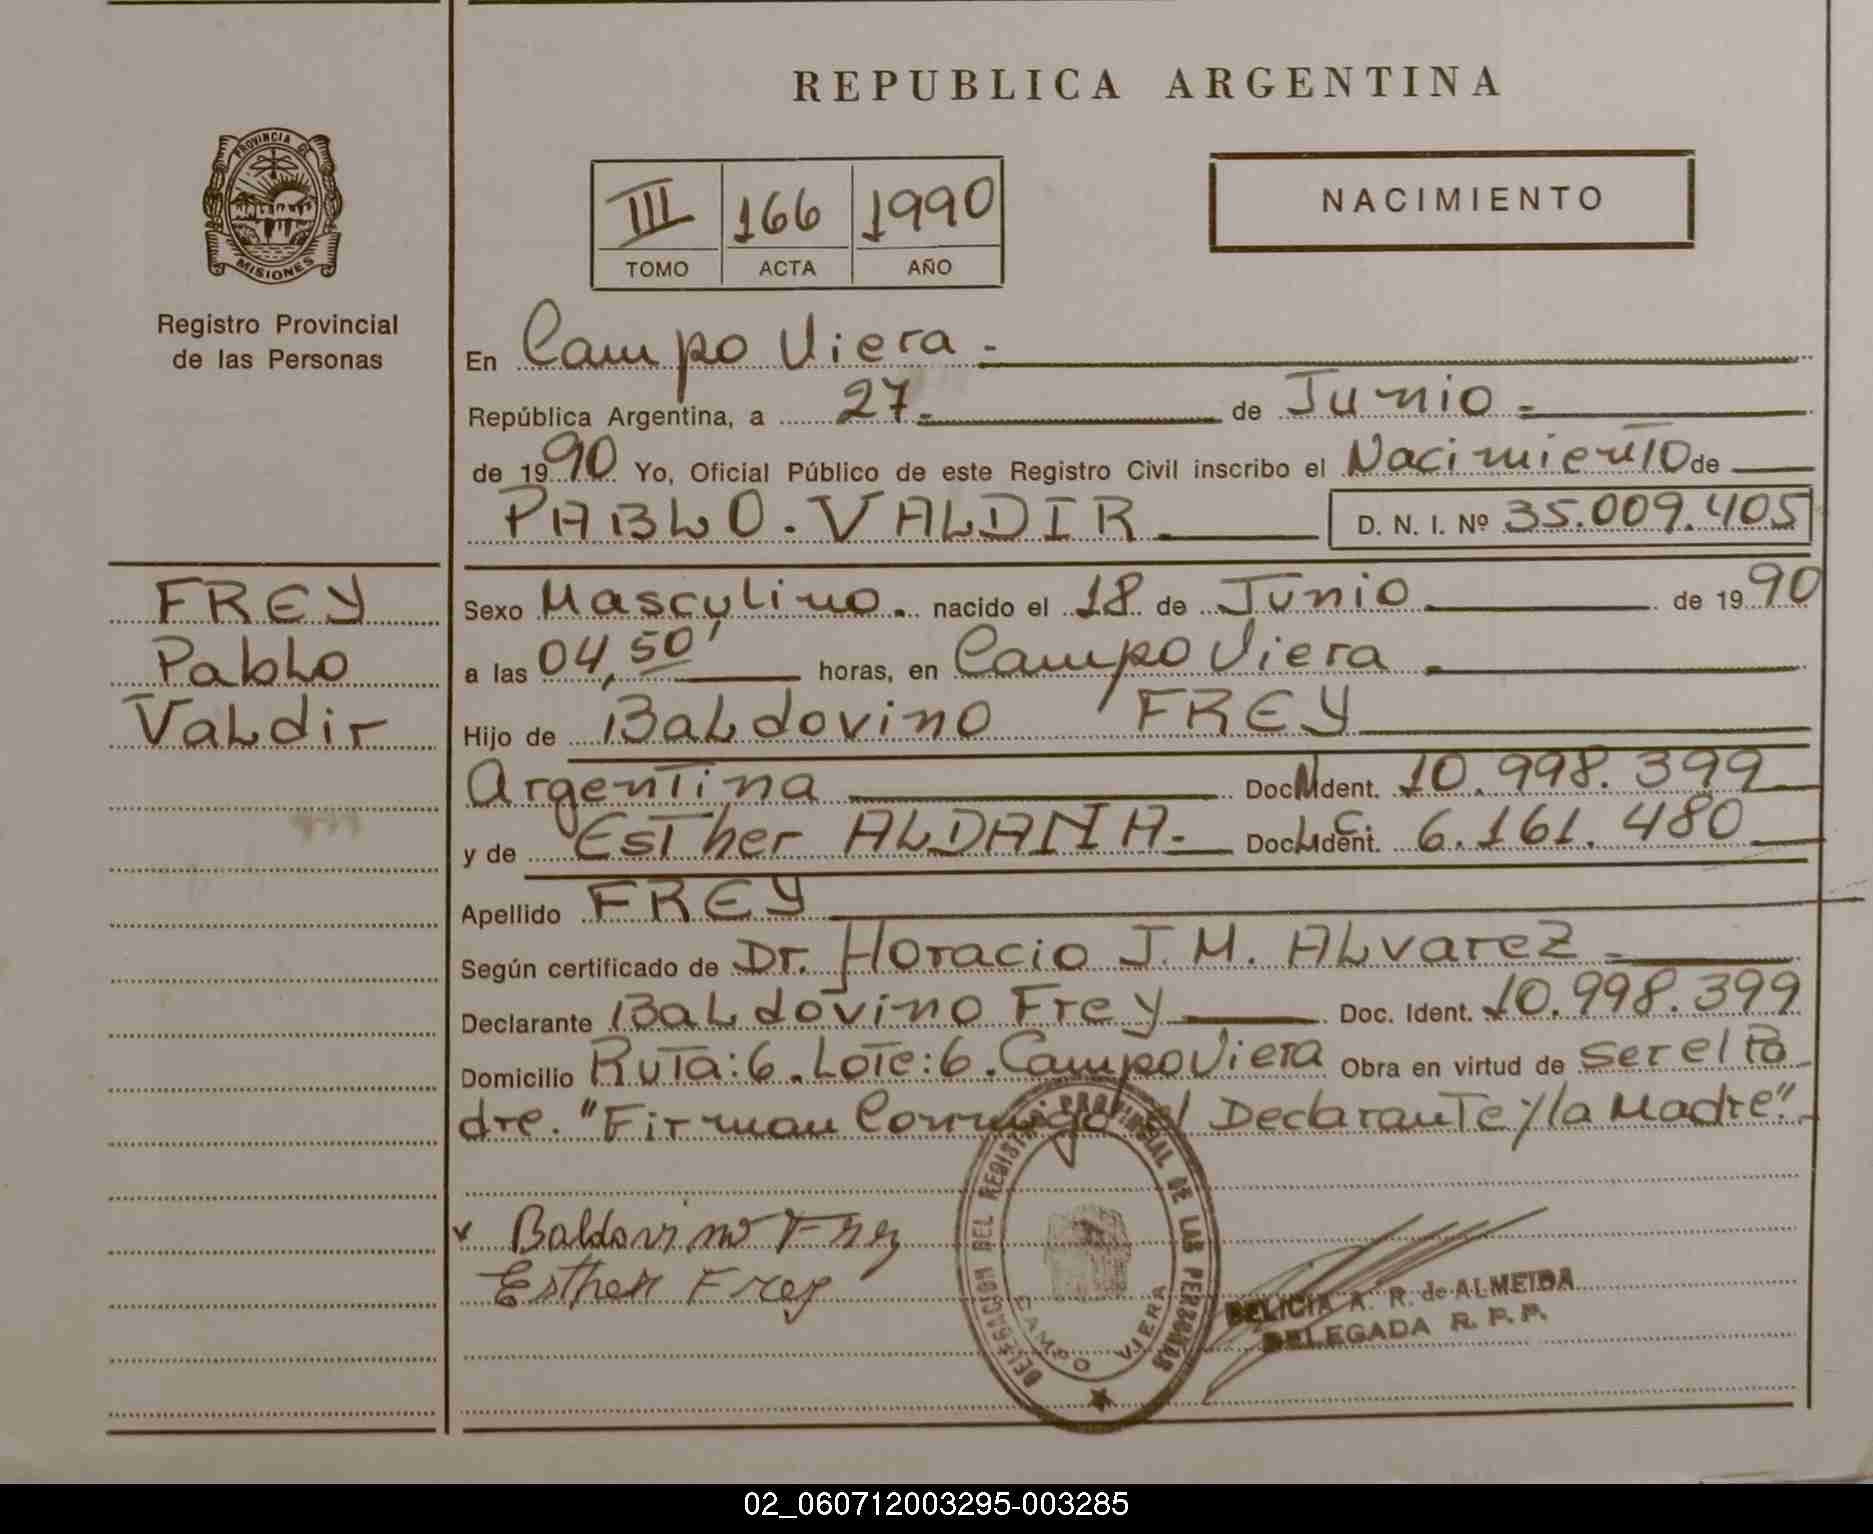 REPUBLICA ARGENTINA
PROVINCIA DE
MISIONES
Registro Provincial
de las Personas
III 166 1990
TOMO ACTA AÑO
NACIMIENTO
En Campo Viera.-
República Argentina, a 27.- de Junio.-
de 1990 Yo, Oficial Público de este Registro Civil inscribo el Nacimiento de
PABLO. VALDIR D. N. I. Nº 35.009.405
FREY
Pablo
Valdir
Sexo Masculino. nacido el 18 de Junio de 1990
a las 04,50' horas, en Campo Viera
Hijo de Baldovino FREY
Argentina Doc. M Ident. 10.998.399
y de Esther ALDANA.- Doc. L.C. Ident. 6.161.480
Apellido FREY
Según certificado de Dr. Horacio J. M. ALvarez
Declarante Baldovino Frey Doc. Ident. 10.998.399
Domicilio Ruta:6.Lote:6.Campo Viera Obra en virtud de ser el Pa
dre. "Firman Conmigo el Declarante y la Madre".
Baldovino Frey
Esther Frey
DELEGACION DEL REGISTRO PROVINCIAL DE LAS PERSONAS
CAMPO VIERA
DELICIA A. R. de ALMEIDA
DELEGADA R. P. P.
02_060712003295-003285